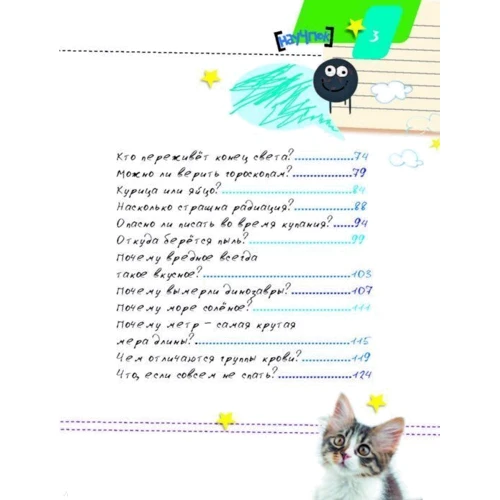 [НАУЧПОК]
3
Кто переживёт конец света?..................74
Можно ли верить гороскопам?..............79
Курица или яйцо?....................................84
Насколько страшна радиация?..............88
Опасно ли писать во время купания?....94
Откуда берётся пыль?............................99
Почему вредное всегда
такое вкусное?.......................................103
Почему вымерли динозавры?...............107
Почему море солёное?..........................111
Почему метр – самая крутая
мера длины?..........................................115
Чем отличаются группы крови?............119
Что, если совсем не спать?...................124